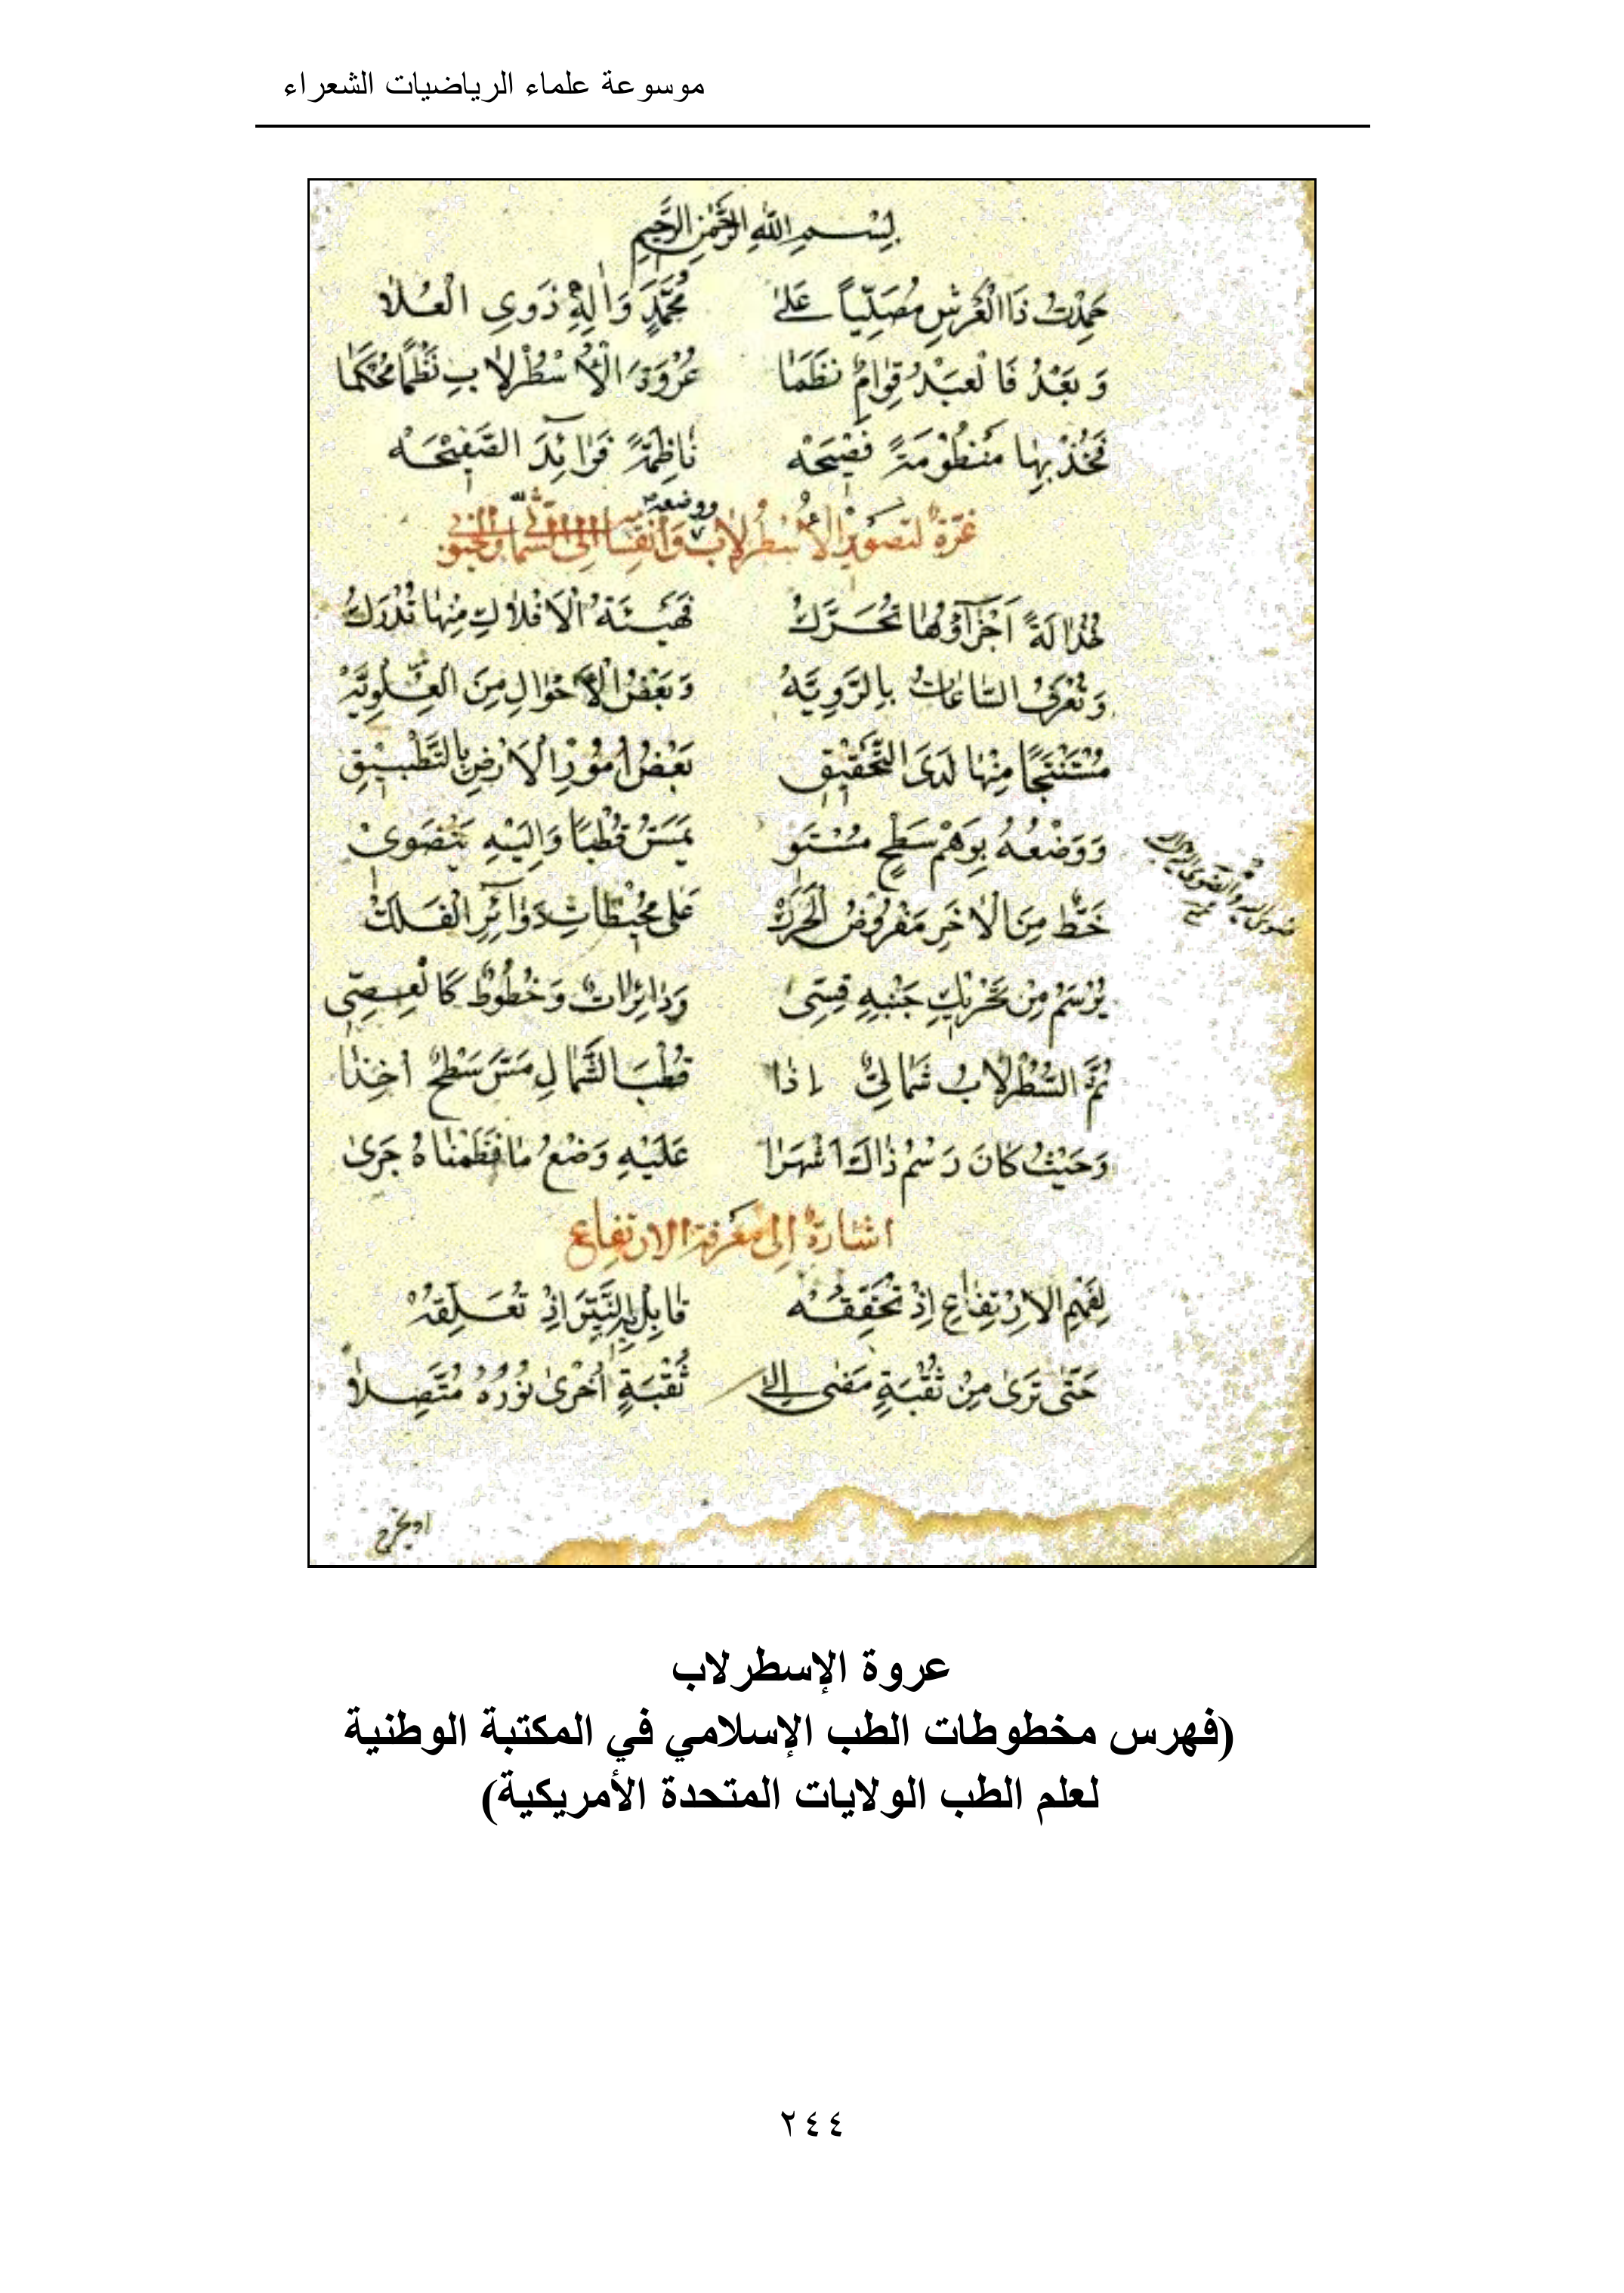 موسوعة علماء الرياضيات الشعراء
بِسْمِ اللّٰهِ الرَّحْمٰنِ الرَّحِيمِ
حَمِدْتُ ذَا الْعَرْشِ مُصَلِّياً عَلىٰ مُحَمَّدٍ وَاٰلِهِ ذَوِى الْعُلاٰ
وَ بَعْدُ فَالْعَبْدُ قِوٰامٌ نَظَمٰا عُرْوَةَ الْأُسْطُرْلاٰبِ نَظْماً مُحْكَمٰا
فَخُذْ بِهٰا مَنْظُوْمَةً فَصْيْحَهْ نٰاظِمَةً فَوٰائِدَ الصَّفِيْحَهْ
غرّة لتصوير الأسطرلاب ووضعه وانقسامه إلى الشمالى والجنوبى
هٰذٰا لَةٌ اَجْزٰآؤُهٰا تُحَرَّكُ فَهَيْئَةُ الْاَفْلاٰكِ مِنْهٰا تُدْرَكُ
وَ تُعْرَفُ السّٰاعٰاتُ بِالرَّوِيَّهْ وَ بَعْضُ الْأَحْوٰالِ مِنَ الْعُلْوِيَّهْ
مُسْتَنْتَجًا مِنْهٰا لَدَى التَّحْقِيْقِ بَعْضُ أُمُوْرِ الْاَرْضِ بِالتَّطْبِيْقِ
وَوَضْعُهُ بِوَهْمِ سَطْحٍ مُسْتَوِ يَمَسُّ قُطْبًا وَاِلَيْهِ يَنْضَوِىْ
خَطٌّ مِنَ الْاٰخَرِ مَفْرُوْضُ الْحَرَكْ عَلىٰ مُحِيْطٰاتِ دَوٰآئِرِ الْفَلَكْ
يُرْسَمُ مِنْ تَحْرِيْكِ جَنْبِهِ قِسِّى وَدٰائِرٰاتٌ وَ خُطُوْطٌ كَالْعِصِّى
ثُمَّ السُّطُرْلاٰبُ شَمٰالِيٌّ إِذٰا قُطْبَ الشَّمٰالِ مَسَّ سَطْحٌ اُخِذٰا
وَحَيْثُ كٰانَ رَسْمُ ذٰاكَ اَشْهَرٰا عَلَيْهِ وَضْعُ مٰا نَظَمْنٰاهُ جَرىٰ
اشٰارةٌ إلى معرفة الارتفاع
لِفَهْمِ الْاِرْتِفٰاعِ اِذْ تُحَقِّقُهْ قٰابِلْ بِهِ النَّيِّرَ اِذْ تُعَلِّقُهْ
حَتّٰى تَرىٰ مِنْ ثُقْبَةٍ مَضٰى إلىٰ ثُقْبَةٍ اُخْرىٰ نُوْرُهُ مُتَّصِلاٰ
عروة الإسطرلاب
(فهرس مخطوطات الطب الإسلامي في المكتبة الوطنية
لعلم الطب الولايات المتحدة الأمريكية)
٢٤٤